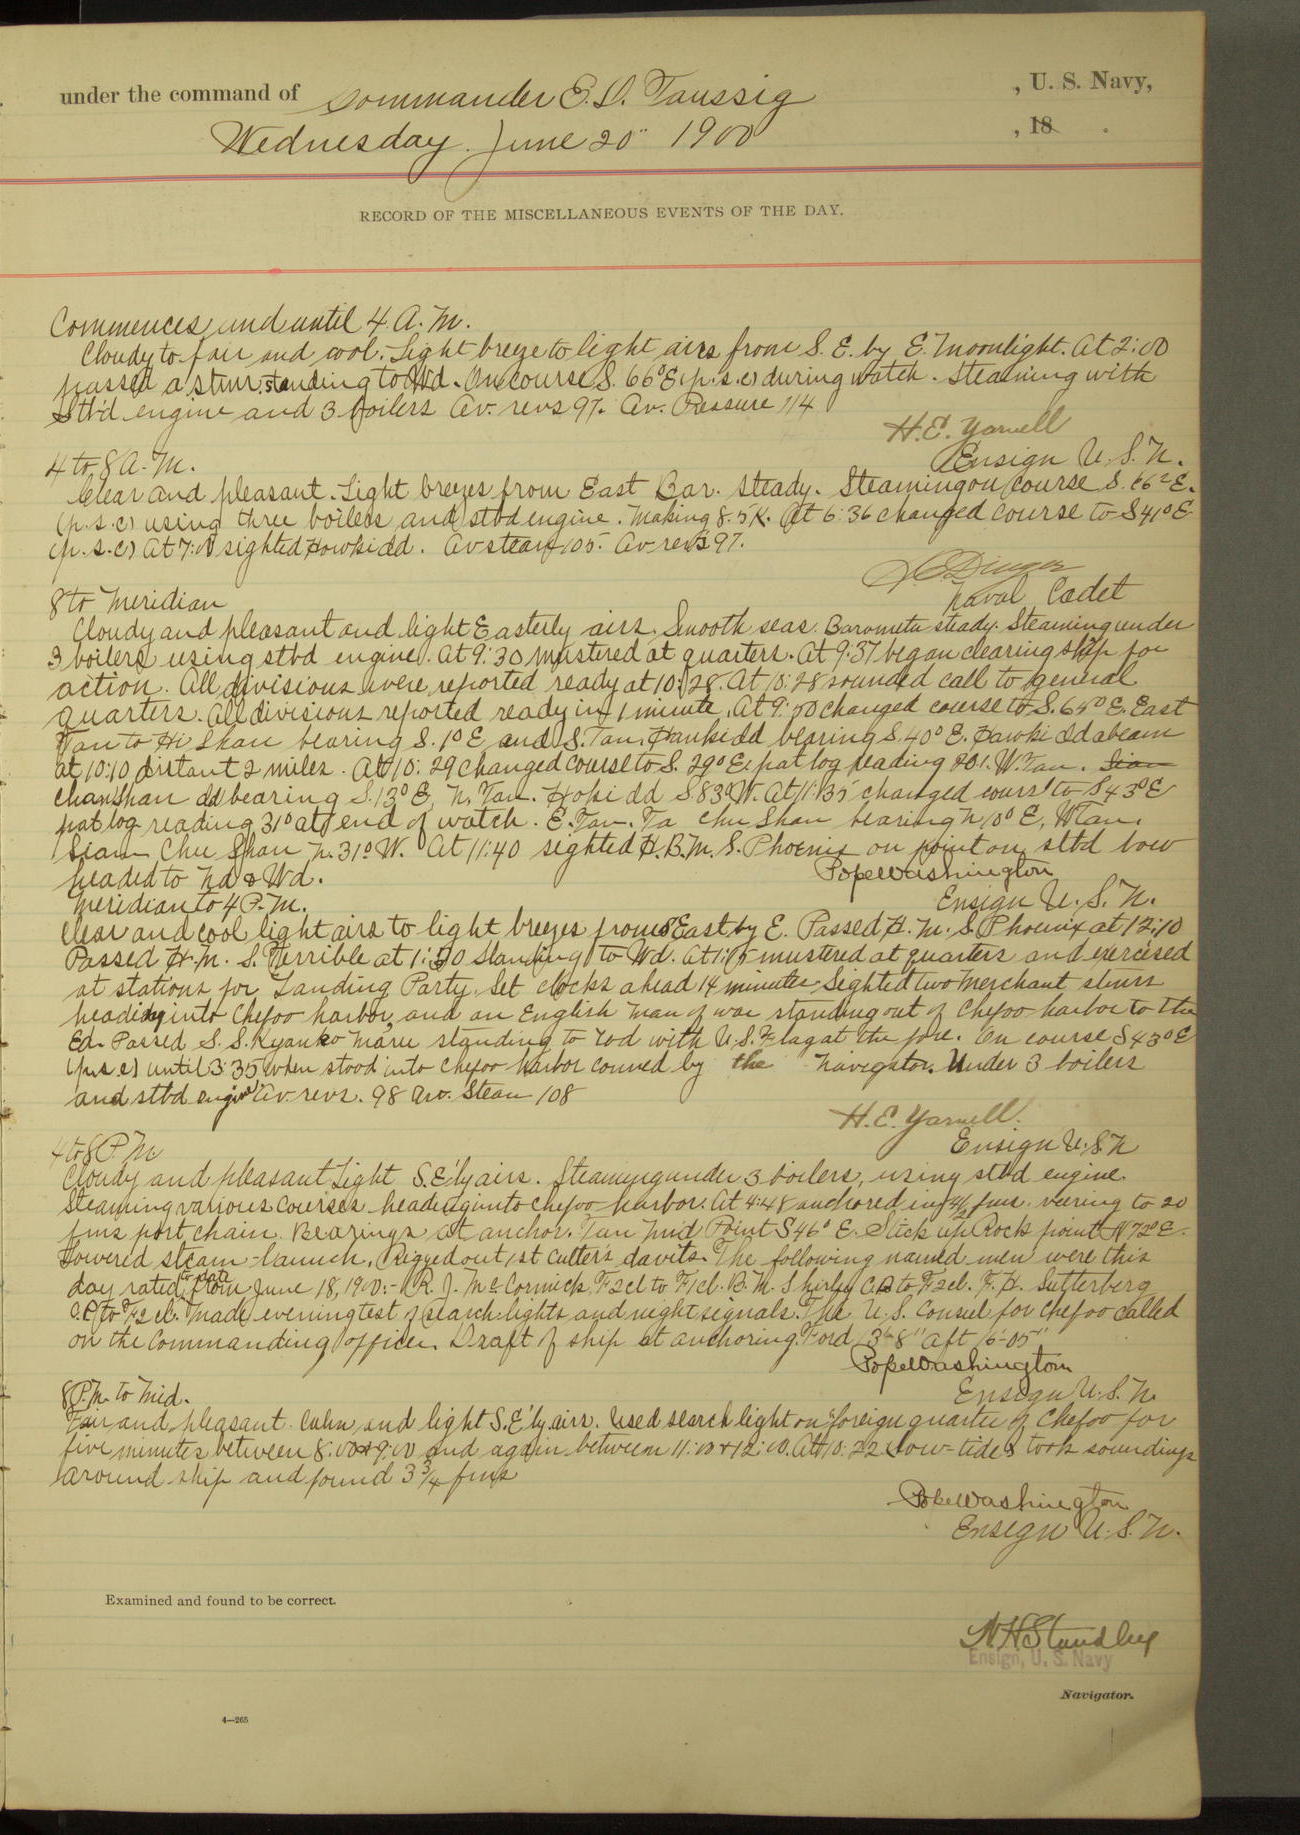 under the command of Commander E. D. Taussig , U. S. Navy,
Wednesday. June 20" 1900 , 18 .
RECORD OF THE MISCELLANEOUS EVENTS OF THE DAY.
Commences and until 4. A. M.
Cloudy to fair and cool. Light breeze to light airs from S. E. by E. Moonlight. At 2:00
passed a stmr. standing to Wd. On course S. 66° E (p. s. c) during watch. Steaming with
Stb'd engine and 3 boilers Av. revs 97. Av. Pressure 114
H. E. Yarnell
Ensign U. S. N.
4 to 8 A. M.
Clear and pleasant. Light breezes from East Bar. steady. Steaming on course S. 66° E.
(p. s. c) using three boilers and stbd engine. Making 8.5 K. At 6:36 changed course to S 41° E
(p. s. c) At 7:00 sighted Howki dd. Av steam 105. Av revs 97.
Dinger
Naval Cadet
8 to Meridian
Cloudy and pleasant and light Easterly airs. Smooth seas. Barometer steady. Steaming under
3 boilers using stbd engine. At 9:30 mustered at quarters. At 9:37 began clearing ship for
action. All divisions were reported ready at 10:28. At 10:28 sounded call to general
quarters. All divisions reported ready in 1 minute. At 9:50 changed course to S. 64° E. East
Tau to Hi Shan bearing S. 1° E and S. Tau. Hawki dd bearing S. 40° E. Hawki dd abeam
at 10:10 distant 2 miles. At 10:29 changed course to S. 29° E pat log reading 201. W. Tau. Siau
Chau Shan dd bearing S. 13° E, N. Tau. Hoki dd S 83° W. At 11:35 changed course to S 43° E
pat log reading 31° at end of watch. E. Tau. Ta Chu Shan bearing N 10° E, W Tau.
Siau Chu Shan N. 31° W. At 11:40 sighted H. B. M. S. Phoenix on point on stbd bow
headed to Nd & Wd.
Pope Washington
Ensign U. S. N.
Meridian to 4 P. M.
Clear and cool light airs to light breezes from East by E. Passed H. M. S. Phoenix at 12:10
Passed H. M. S. Terrible at 1:30 standing to Wd. At 1:15 mustered at quarters and exercised
at stations for Landing Party. Set clocks ahead 14 minutes. Sighted two merchant stmrs
heading into Chefoo harbor, and an English man of war standing out of Chefoo harbor to the
Ed. Passed S. S. Kyanko Maru standing to Nd with U. S. Flag at the fore. On course S 43° E
(p. s. c) until 3:35 when stood into Chefoo harbor conned by the Navigator. Under 3 boilers
and stbd engine Av. revs. 98 Av. Steam 108
H. E. Yarnell.
Ensign U. S. N
4 to 8 P. M.
Cloudy and pleasant Light S. E'ly airs. Steaming under 3 boilers, using stbd engine.
Steaming various courses heading into Chefoo harbor. At 4:48 anchored in 4½ fms. veering to 20
fms port chain. Bearings at anchor. Tau mid Point S 46° E. Stick up Rock point N 72° E.
Lowered steam-launch. Rigged out 1st cutters davits. The following named men were this
day rated to date from June 18, 1900:- R. J. McCormick F 2 cl to F 1 cl. B. M. Shirley C. P. to F 2 cl. F. H. Sutterberg
C. P. to F 2 cl. Made evening test of search lights and night signals. The U. S. Consul for Chefoo called
on the Commanding officer. Draft of ship at anchoring Ford 13'-8" Aft 16'-05"
Pope Washington
Ensign U. S. N.
8 P. M. to Mid.
Fair and pleasant. Calm and light S. E'ly airs. Used search light on "foreign quarter of Chefoo for
five minutes between 8:00 & 9:00 and again between 11:00 & 12:00. At 10:22 (low-tide) took soundings
around ship and found 3¾ fms
Pope Washington
Ensign U. S. N.
Examined and found to be correct.
W H Standley
Ensign, U. S. Navy
Navigator.
4—265